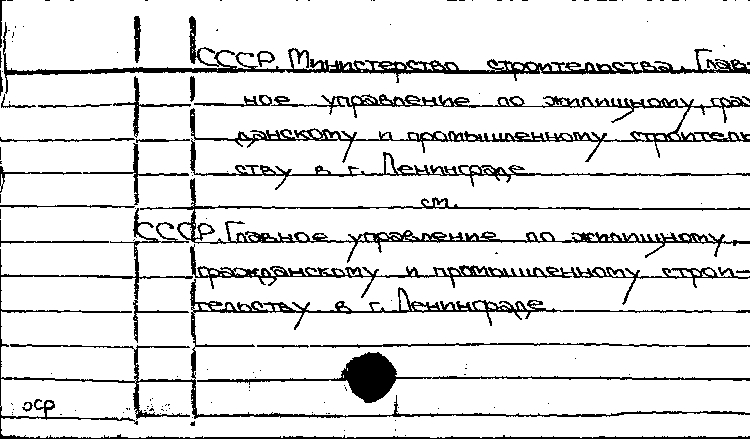 СССР. Министерство строительства. Глав-
ное управление по жилищному, граж-
данскому и промышленному строитель-
ству в г. Ленинграде
см.
СССР. Главное управление по жилищному,
гражданскому и промышленному строи-
тельству в г. Ленинграде.
оср